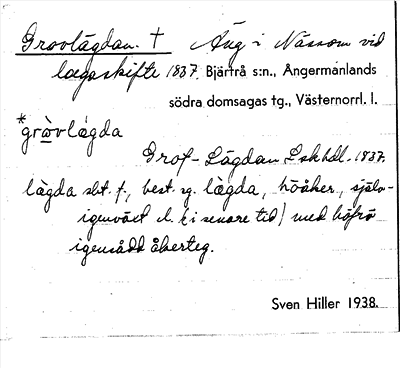 Grovlägdan. † Äng i Nässom vid
lagaskifte 1837. Bjärtrå s:n., Ångermanlands
södra domsagas tg., Västernorrl. l.
*gròvlägda
Grof-Lägdan Lskhdl. 1837.
lägda sbt. f., best. sg. lägda, höåker, själv-
igenväxt el. (i senare tid) med höfrö
igensådd åkerteg.
Sven Hiller 1938.